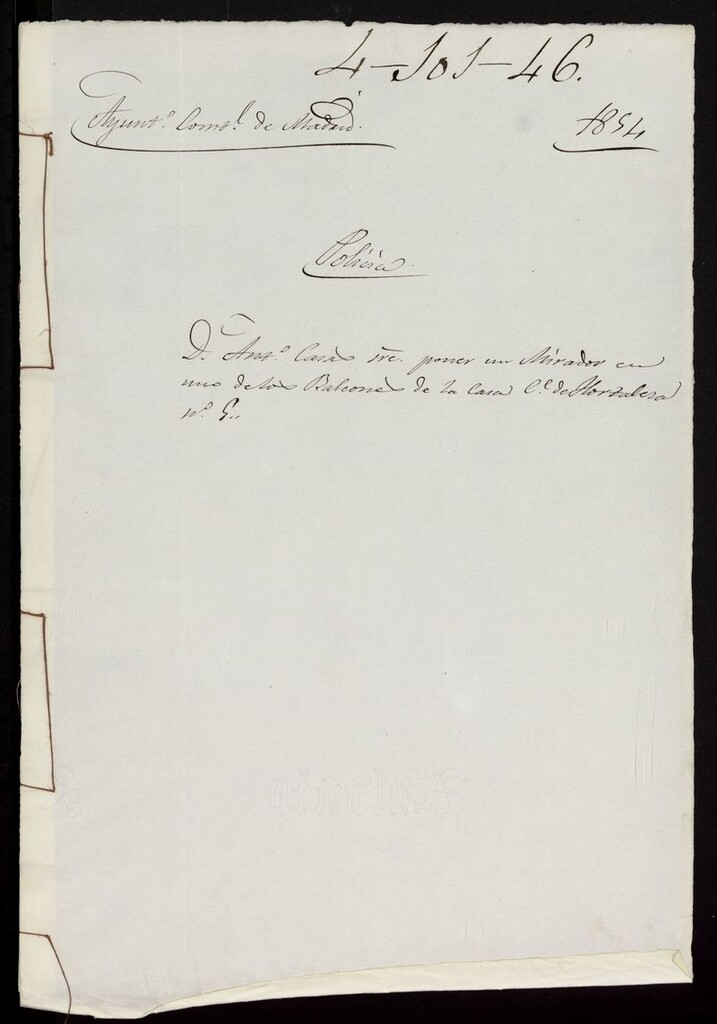 4-101-46.
Ayunt.º Const.l de Madrid.
1854
Policía.
D. Ant.º Casas sre. poner un Mirador en
uno de los Balcones de la Casa C.e de Hortaleza
nº 5..
Antonio